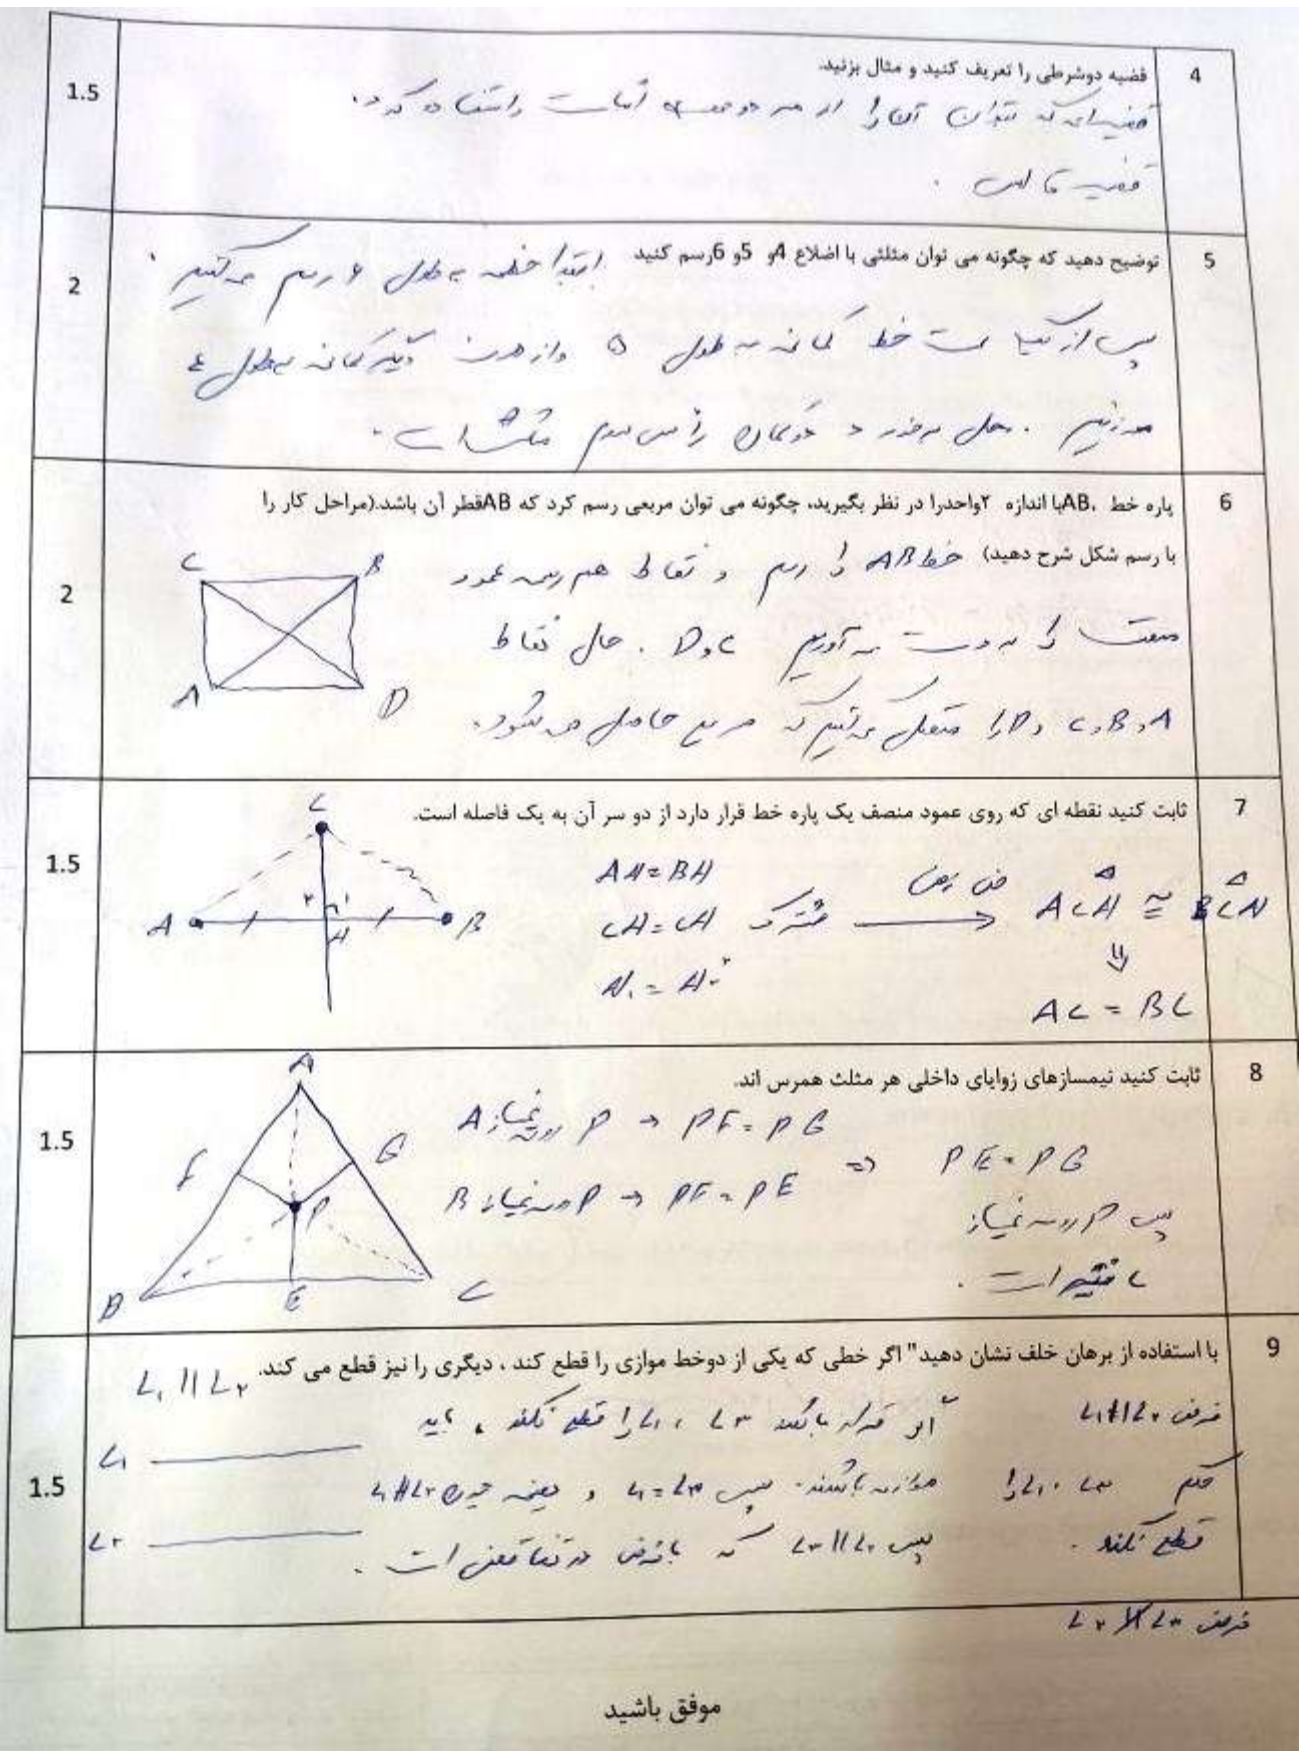 4
قضیه دوشرطی را تعریف کنید و مثال بزنید.
1.5
قضیه‌ای که بتوان آن را از هر دو اثبات و استفاده کرد.
قضیه تالس.
5
توضیح دهید که چگونه می توان مثلثی با اضلاع 4و 5و 6رسم کنید
2
ابتدا خطی به طول ۶ رسم می‌کنیم
پس از یک سمت خط کمانی به طول ۵ و از طرف دیگر کمانی به طول ۴
می‌زنیم. محل برخورد دو کمان رأس سوم مثلث است.
6
پاره خط AB، با اندازه ۲واحدرا در نظر بگیرید، چگونه می توان مربعی رسم کرد که ABقطر آن باشد.(مراحل کار را
با رسم شکل شرح دهید)
2
خط AB را رسم و نقاط هم روی عمود
منصف را به دست می‌آوریم C و D. حال نقاط
A، B، C و D را متصل می‌کنیم که مربع حاصل می‌شود.
C B
A D
7
ثابت کنید نقطه ای که روی عمود منصف یک پاره خط قرار دارد از دو سر آن به یک فاصله است.
1.5
C
A H B
۲ ۱
AH = BH
CH = CH مشترک
H₁ = H₂
ض ز ض
ACH ≅ BCH
⇓
AC = BC
8
ثابت کنید نیمسازهای زوایای داخلی هر مثلث همرس اند.
1.5
A
F G
P
B E C
P روی نیمساز A → PF = PG
P روی نیمساز B → PF = PE
⇒ PE = PG
پس P روی نیمساز
C است.
9
با استفاده از برهان خلف نشان دهید" اگر خطی که یکی از دوخط موازی را قطع کند ، دیگری را نیز قطع می کند.
1.5
L₁ || L₂
L₁
L₂
فرض L₁ || L₂
حکم L₃، L₁ را
قطع نکند.
اگر قرار باشد L₃، L₁ را قطع نکند، باید
موازی باشند. پس L₁ = L₃ و یعنی چون L₁ || L₂
پس L₃ || L₂ که با فرض در تناقض است.
فرض L₂ ∦ L₃
موفق باشید